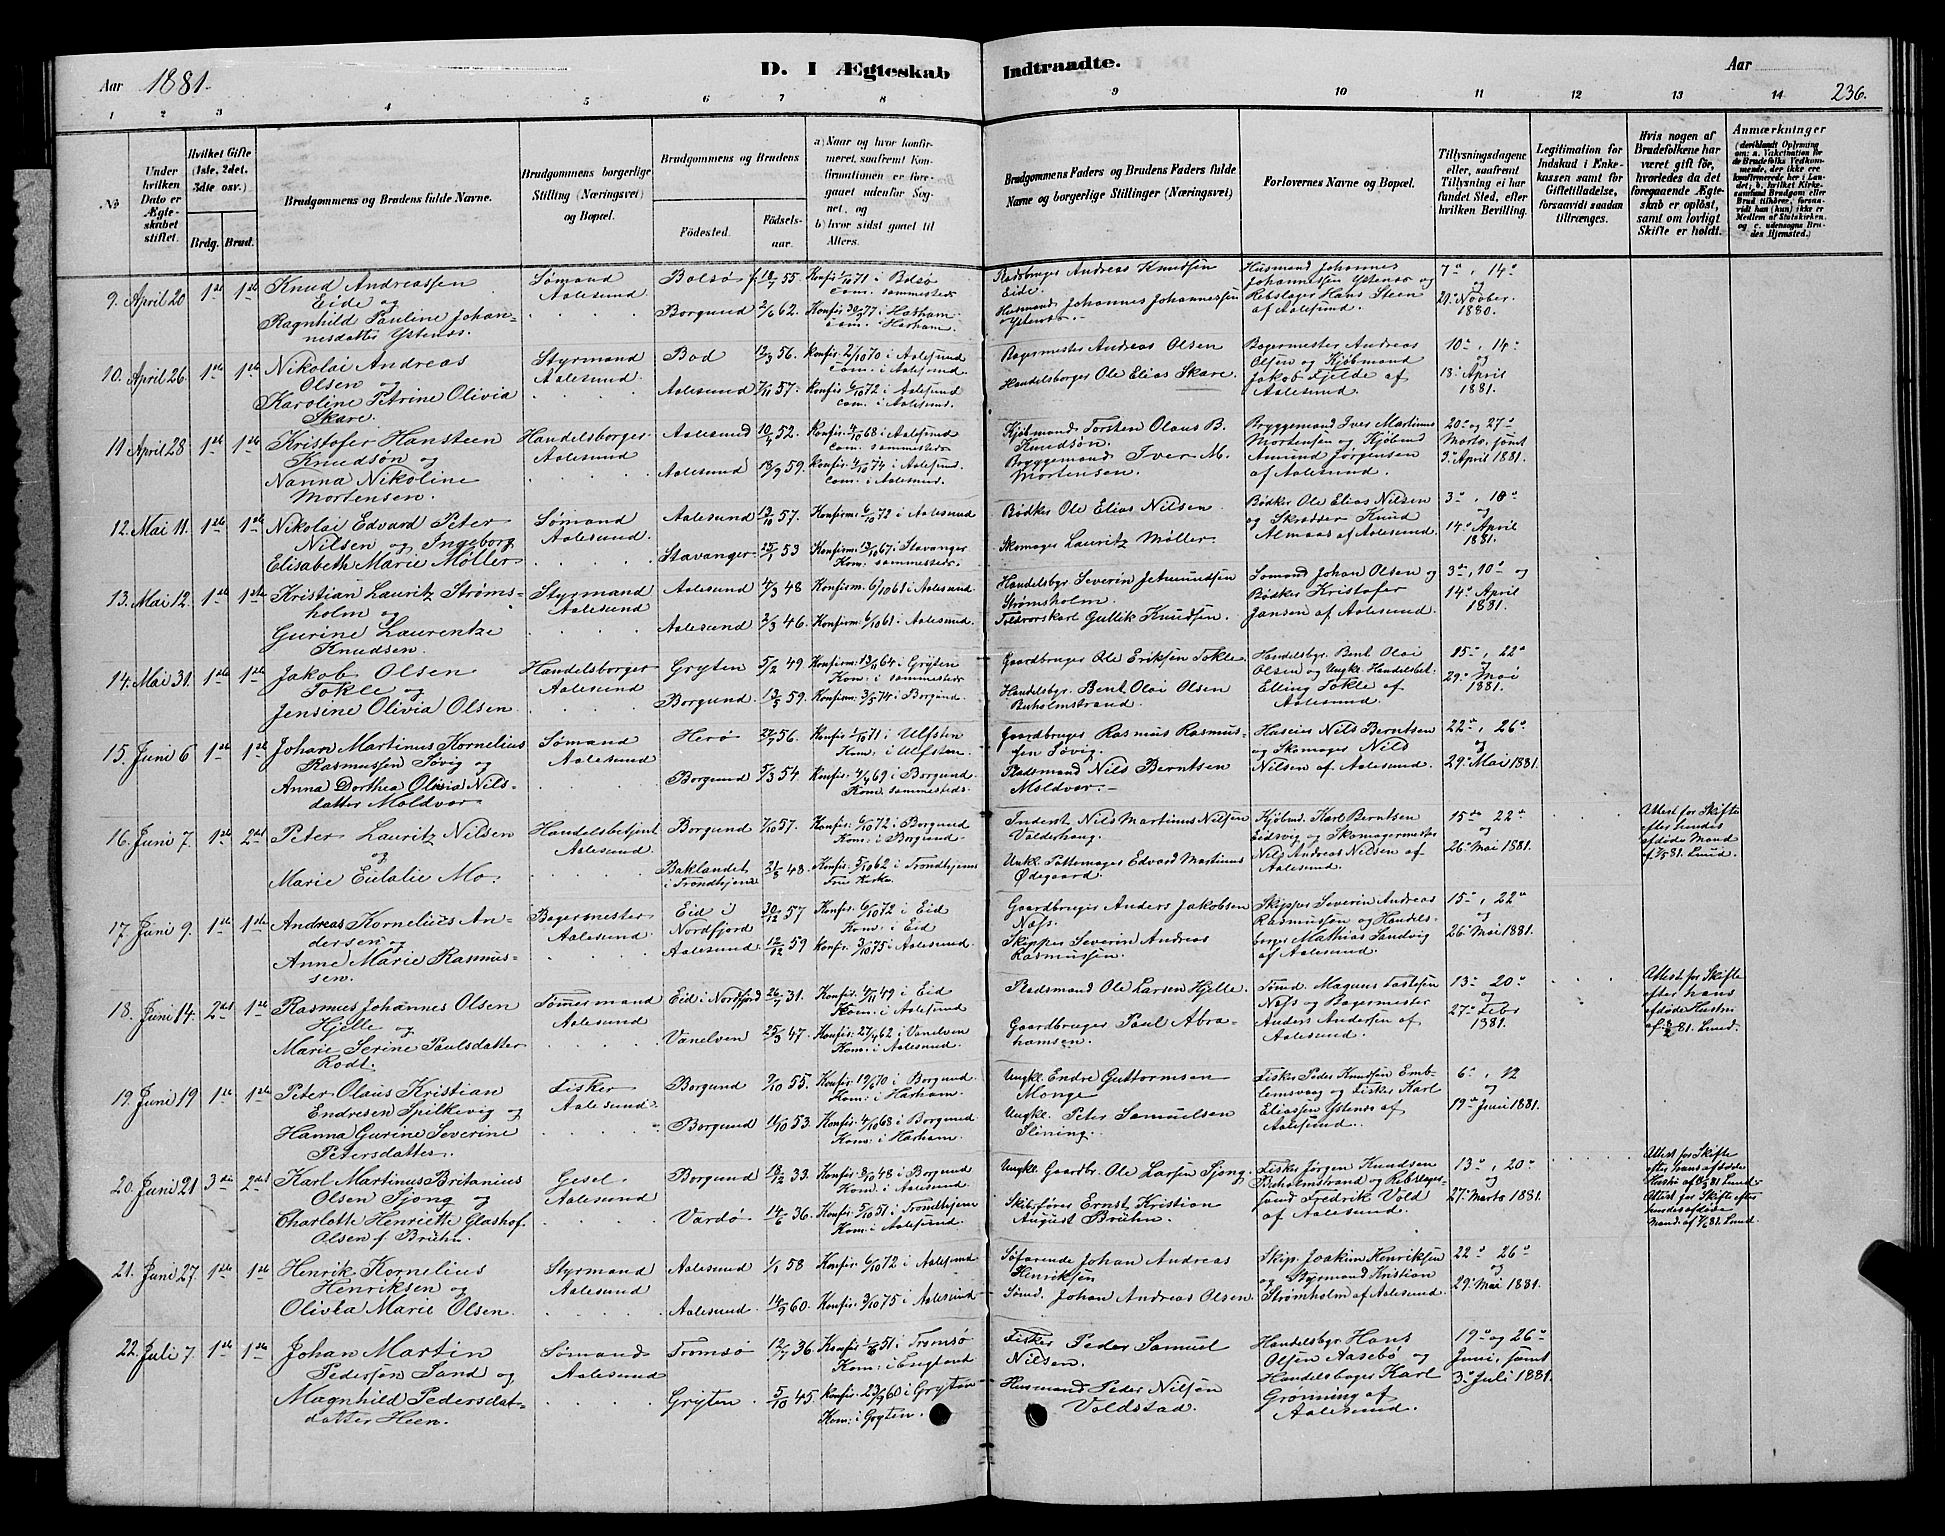 Aar 1881.
D. I Ægteskab Indtraadte.
Aar
236.
1 2 3 4 5 6 7 8 9 10 11 12 13 14
No
Under hvilken Dato er Ægteskabet stiftet.
Hvilket Gifte (1ste, 2det, 3dte osv.)
Brdg. Brud.
Brudgommens og Brudens fulde Navne.
Brudgommens borgerlige Stilling (Næringsvei) og Bopæl.
Brudgommens og Brudens
Födested. Födselsaar.
a) Naar og hvor konfirmeret, saafremt Konfirmationen er foregaaet udenfor Sognet, og
b) hvor sidst gaaet til Alters.
Brudgommens Faders og Brudens Faders fulde Navne og borgerlige Stillinger (Næringsvei)
Forlovernes Navne og Bopæl.
Tillysningsdagene eller, saafremt Tillysning ei har fundet Sted, efter hvilken Bevilling.
Legitimation for Indskud i Enkekassen samt for Giftetilladelse, forsaavidt saadan tiltrænges.
Hvis nogen af Brudefolkene har været gift för, hvorledes da det foregaaende Ægteskab er oplöst, samt om lovligt Skifte er holdt.
Anmærkninger
(deriblandt Oplysning om: a. Vakcination for de Brudefolks Vedkommende, der ikke ere konfirmerede her i Landet; b. hvilket Kirkesamfund Brudgom eller Brud tilhörer, forsaavidt han (hun) ikke er Medlem af Statskirken. og c. udensogns Brudes Hjemsted.)
9. April 20 1ste 1ste Knud Andreassen Eide og Ragnhild Pauline Johannesdatter Ystenes.
Sømand Aalesund
Bolsø 55 Konfir 71 i Bolsø Com. sammesteds
Borgund 2/6 62 Konfir 77 i Harham. Com. i Harham.
Andreas Knudsen Eide
Husmand Johannes Johannessen Ystenes.
Husmand Johannes Johannessen Ystenes og Rebslager Hans Steen af Aalesund
7de, 14de og 21de Novbr. 1880.
10. April 26 1ste 1ste Nikolai Andreas Olsen og Karoline Petrine Olivia Skare.
Styrmand Aalesund.
Bod 56. Konfir. 2/10 70 i Aalesund Com. i Aalesund.
Aalesund 7/11 57. Konfir. 6/10 72 i Aalesund Com. i Aalesund.
Bagermester Andreas Olsen
Handelsborger Ole Elias Skare.
Bagermester Andreas Olsen og Kjøbmand Jakob Fjelde af Aalesund.
10de, 14de og 18de April 1881.
11 April 28 1ste 1ste Kristofer Hansteen Knudsøn og Nanna Nikoline Mortensen.
Handelsborger Aalesund
Aalesund 52. Konfir. 4/10 68 i Aalesund Com. sammesteds
Aalesund 59. Konfir. 4/10 74 i Aalesund. Com. i Aalesund.
Kjøbmand Torsten Olaus B. Knudsøn.
Bryggemand Iver M. Mortensen.
Bryggemand Iver Martinus Mortensen og Kjøbmd Amund Jørgensen af Aalesund.
20de og 27de Marts, samt 3de April 1881.
12. Mai 11. 1ste 1ste Nikolai Edvard Peter Nilsen og Ingeborg Elisabeth Marie Møller
Sømand Aalesund.
Aalesund 13/10 57. Konfirm. 6/10 72 i Aalesund
Stavanger 25/1 53 Konfirm. 13/10 67 i Stavanger Kom. sammesteds.
Bødker Ole Elias Nilsen.
Skomager Lauritz Møller.
Bødker Ole Elias Nilsen og Skrædder Knud Almaas af Aalesund.
3de, 10de og 14de April 1881.
13. Mai 12. 1ste 1ste Kristian Lauritz Strømsholm og Gurine Laurentze Knudsen.
Styrmand Aalesund
Aalesund 4/3 48 Konfirm. 6/10 61 i Aalesund.
Aalesund 2/3 46. Konfirm. 6/10 61 i Aalesund.
Handelsbgr. Severin Jetmundsen Strømsholm.
Toldvorskarl Gullik Knudsen.
Sømand Johan Olsen og Bødker Kristofer Jansen af Aalesund.
3de, 10de og 14de April 1881.
14. Mai 31. 1ste 1ste Jakob Olsen Tokle og Jensine Olivia Olsen.
Handelsborger Aalesund
Gryten 5/2 49 Konfirm: 13/11 64 i Gryten Kom: i sammesteds
Borgund. 13/5 59. Konfirm. 3/5 74 i Borgund.
Gaardbruger Ole Eriksen Tokle.
Handelsbgr. Bent Olai Olsen Buholmstrand.
Handelsbgr. Bent Olai Olsen og Ungk. Handelsbet. Elling Tokle af Aalesund.
15de, 22de og 29de Mai 1881.
15. Juni 6 1ste 1ste Johan Martinus Kornelius Rasmussen Søvig og Anna Dorthea Olivia Nilsdatter Moldvær.
Sømand Aalesund
Herø 56. Konfir. 71 i Ulfsten Kom. i Ulfsten.
Borgund 5/3 54 Konfir. 69 i Borgund. Kom. sammesteds.
Gaardbruger Rasmus Rasmussen Søvig.
Nils Berntsen Moldvær.
Nils Berntsen og Skomager Nils Nilsen af Aalesund.
22de, 26de og 29de Mai 1881.
16. Juni 7. 1ste 2det Peter Lauritz Nilsen og Marie Eulalie Mo.
Handelsbetjent Aalesund
Borgund 7/10 57. Konfir. 6/10 72 i Borgund Kom: i Borgund.
Baklandet i Trondhjem 21/8 48. Konfir. 5/10 62 i Trondhjems Frue Kirke.
Nils Martinus Nilsen Valderhaug.
Ungk. Pottemager Edvard Martinus Ødegaard.
Kjøbmd. Karl Berntsen Eidsvig og Skomagermester Nils Andreas Nilsen af Aalesund.
15de 22de og 26de Mai 1881.
Attest for Skifte efter hendes afdøde Mand af 7/5 81. Lund.
17. Juni 9. 1ste 1ste Andreas Kornelius Andersen og Anne Marie Rasmussen.
Bagermester Aalesund.
Eid i Nordfjord 30/12 57 Konfir. 6/10 72 i Eid Kom: i Eid
Aalesund 12/12 59 Konfr. 3/10 75 i Aalesund.
Gaardbruger Anders Jakobsen Næss.
Skipper Severin Andreas Rasmussen.
Skipper Severin Andreas Rasmussen og Handelsborger Mathias Sandvig af Aalesund.
15de, 22de og 26de Mai 1881.
18. Juni 14. 2det 1ste Rasmus Johannes Olsen Hjelle og Marie Serine Paulsdatter Rodt.
Tømmermand Aalesund
Eid i Nordfjord 26/7 31. Konfir: 4/11 49 i Eid Kom: i Aalesund
Vanelven 25/3 47. Konfir: 27/4 62 i Vanelven Kom: i Aalesund.
Pladsmand Ole Larsen Hjelle.
Gaardbruger Paul Abrahamsen.
Tømd. Magnus og Bagermester Anders Andersen af Aalesund.
13de 20de og 27de Febr 1881.
Attest for Skifte efter hans afdøde Hustru af 81. Lund.
19. Juni 19 1ste 1ste Peter Olaus Kristian Endresen Spilkevig og Hanna Gurine Severine Petersdatter.
Fisker Aalesund.
Borgund 9/10 55. Konfir 70 i Borgund. Kom: i Harham.
Borgund 11/10 53. Konfir 4/10 68 i Borgund Kom: i Harham.
Ungk. Endre Guttormsen Monge
Ungk. Peter Samuelsen Slining.
Fisker Peder Knudsen Emblemsvaag og Fisker Karl Eliassen Ystenes af Aalesund.
6de, 12 og 19de Juni 1881.
20. Juni 21 3die 2det Karl Martinus Britanius Olsen Sjong og Charlotte Henriette Glashof Olsen f. Brühn.
Gesel Aalesund
Borgund 18/12 33. Konfir: 8/10 48 i Borgund Kom. i Aalesund
Vardø 14/6 36. Konfir. 5/10 51 i Trondhjem Kom: i Aalesund.
Ungk. Gaardbr. Ole Larsen Sjong.
Skibsfører Ernst Kristian August Brühn.
Fisker Jørgen Knudsen Buholmstrand og Rebslagersvend Fredrik Vold af Aalesund.
13de, 20de og 27de Marts 1881.
Attest for Skifte efter hans afdøde Hustru af 81 Lund.
Attest for Skifte efter hendes afdøde Mand. af 81. Lund
21. Juni 27. 1ste 1ste Henrik Kornelius Henriksen og Olivia Marie Olsen.
Styrmand Aalesund
Aalesund 1/1 58 Konfir: 6/10 72 i Aalesund
Aalesund. 14/9 60. Konfir. 3/10 75 i Aalesund
Søfarende Johan Andreas Henriksen
Sømd. Johan Andreas Olsen.
Skip. Joakim Henriksen og Styrmand Kristian Strømholm af Aalesund.
22de 26de og 29de Mai 1881.
22. Juli 7. 1ste 1ste Johan Martin Pedersen Sand og Magnhild Pedersdatter Heen.
Sømand Aalesund
Tromsø 12/7 36. Konfir. 51 i Tromsø Kom: i England
Gryten 5/10 45. Konfir. 23/9 60 i Gryten Kom: i Gryten.
Fisker Peder Samuel Nilsen.
Husmand Peder Nilsen Voldstad.
Handelsbgr. Hans Olsen Aasebø og Handelsborger Karl Grønning af Aalesund.
19de og 26de Juni, samt 3de Juli 1881.